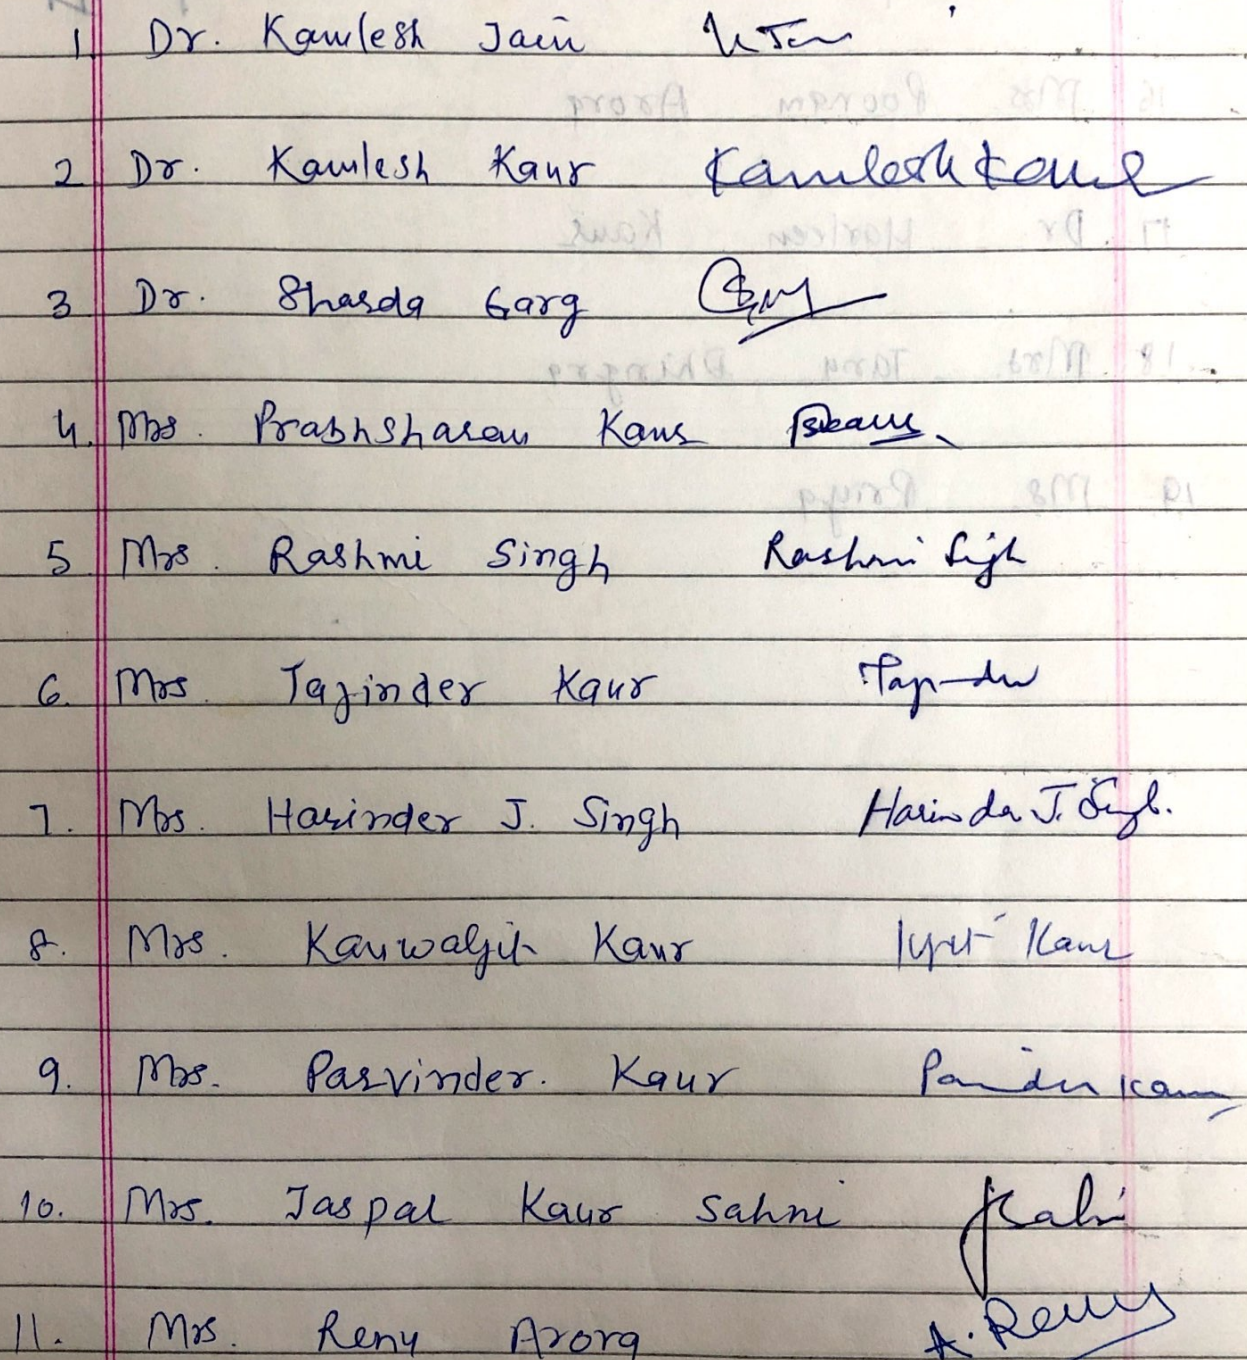 1. Dr. Kamlesh Jain
2 Dr. Kamlesh Kaur Kamlesh Kaur
3 Dr. Sharda Garg
4. Mrs. Prabhsharan Kaur
5 Mrs Rashmi Singh Rashmi Singh
6. Mrs. Tajinder Kaur
7. Mrs. Harinder J. Singh Harinder J. Singh.
8. Mrs. Kanwaljit Kaur Kaur
9. Mrs. Parvinder. Kaur Kaur
10. Mrs. Jaspal Kaur Sahni
11. Mrs. Renu Arora A. Renu